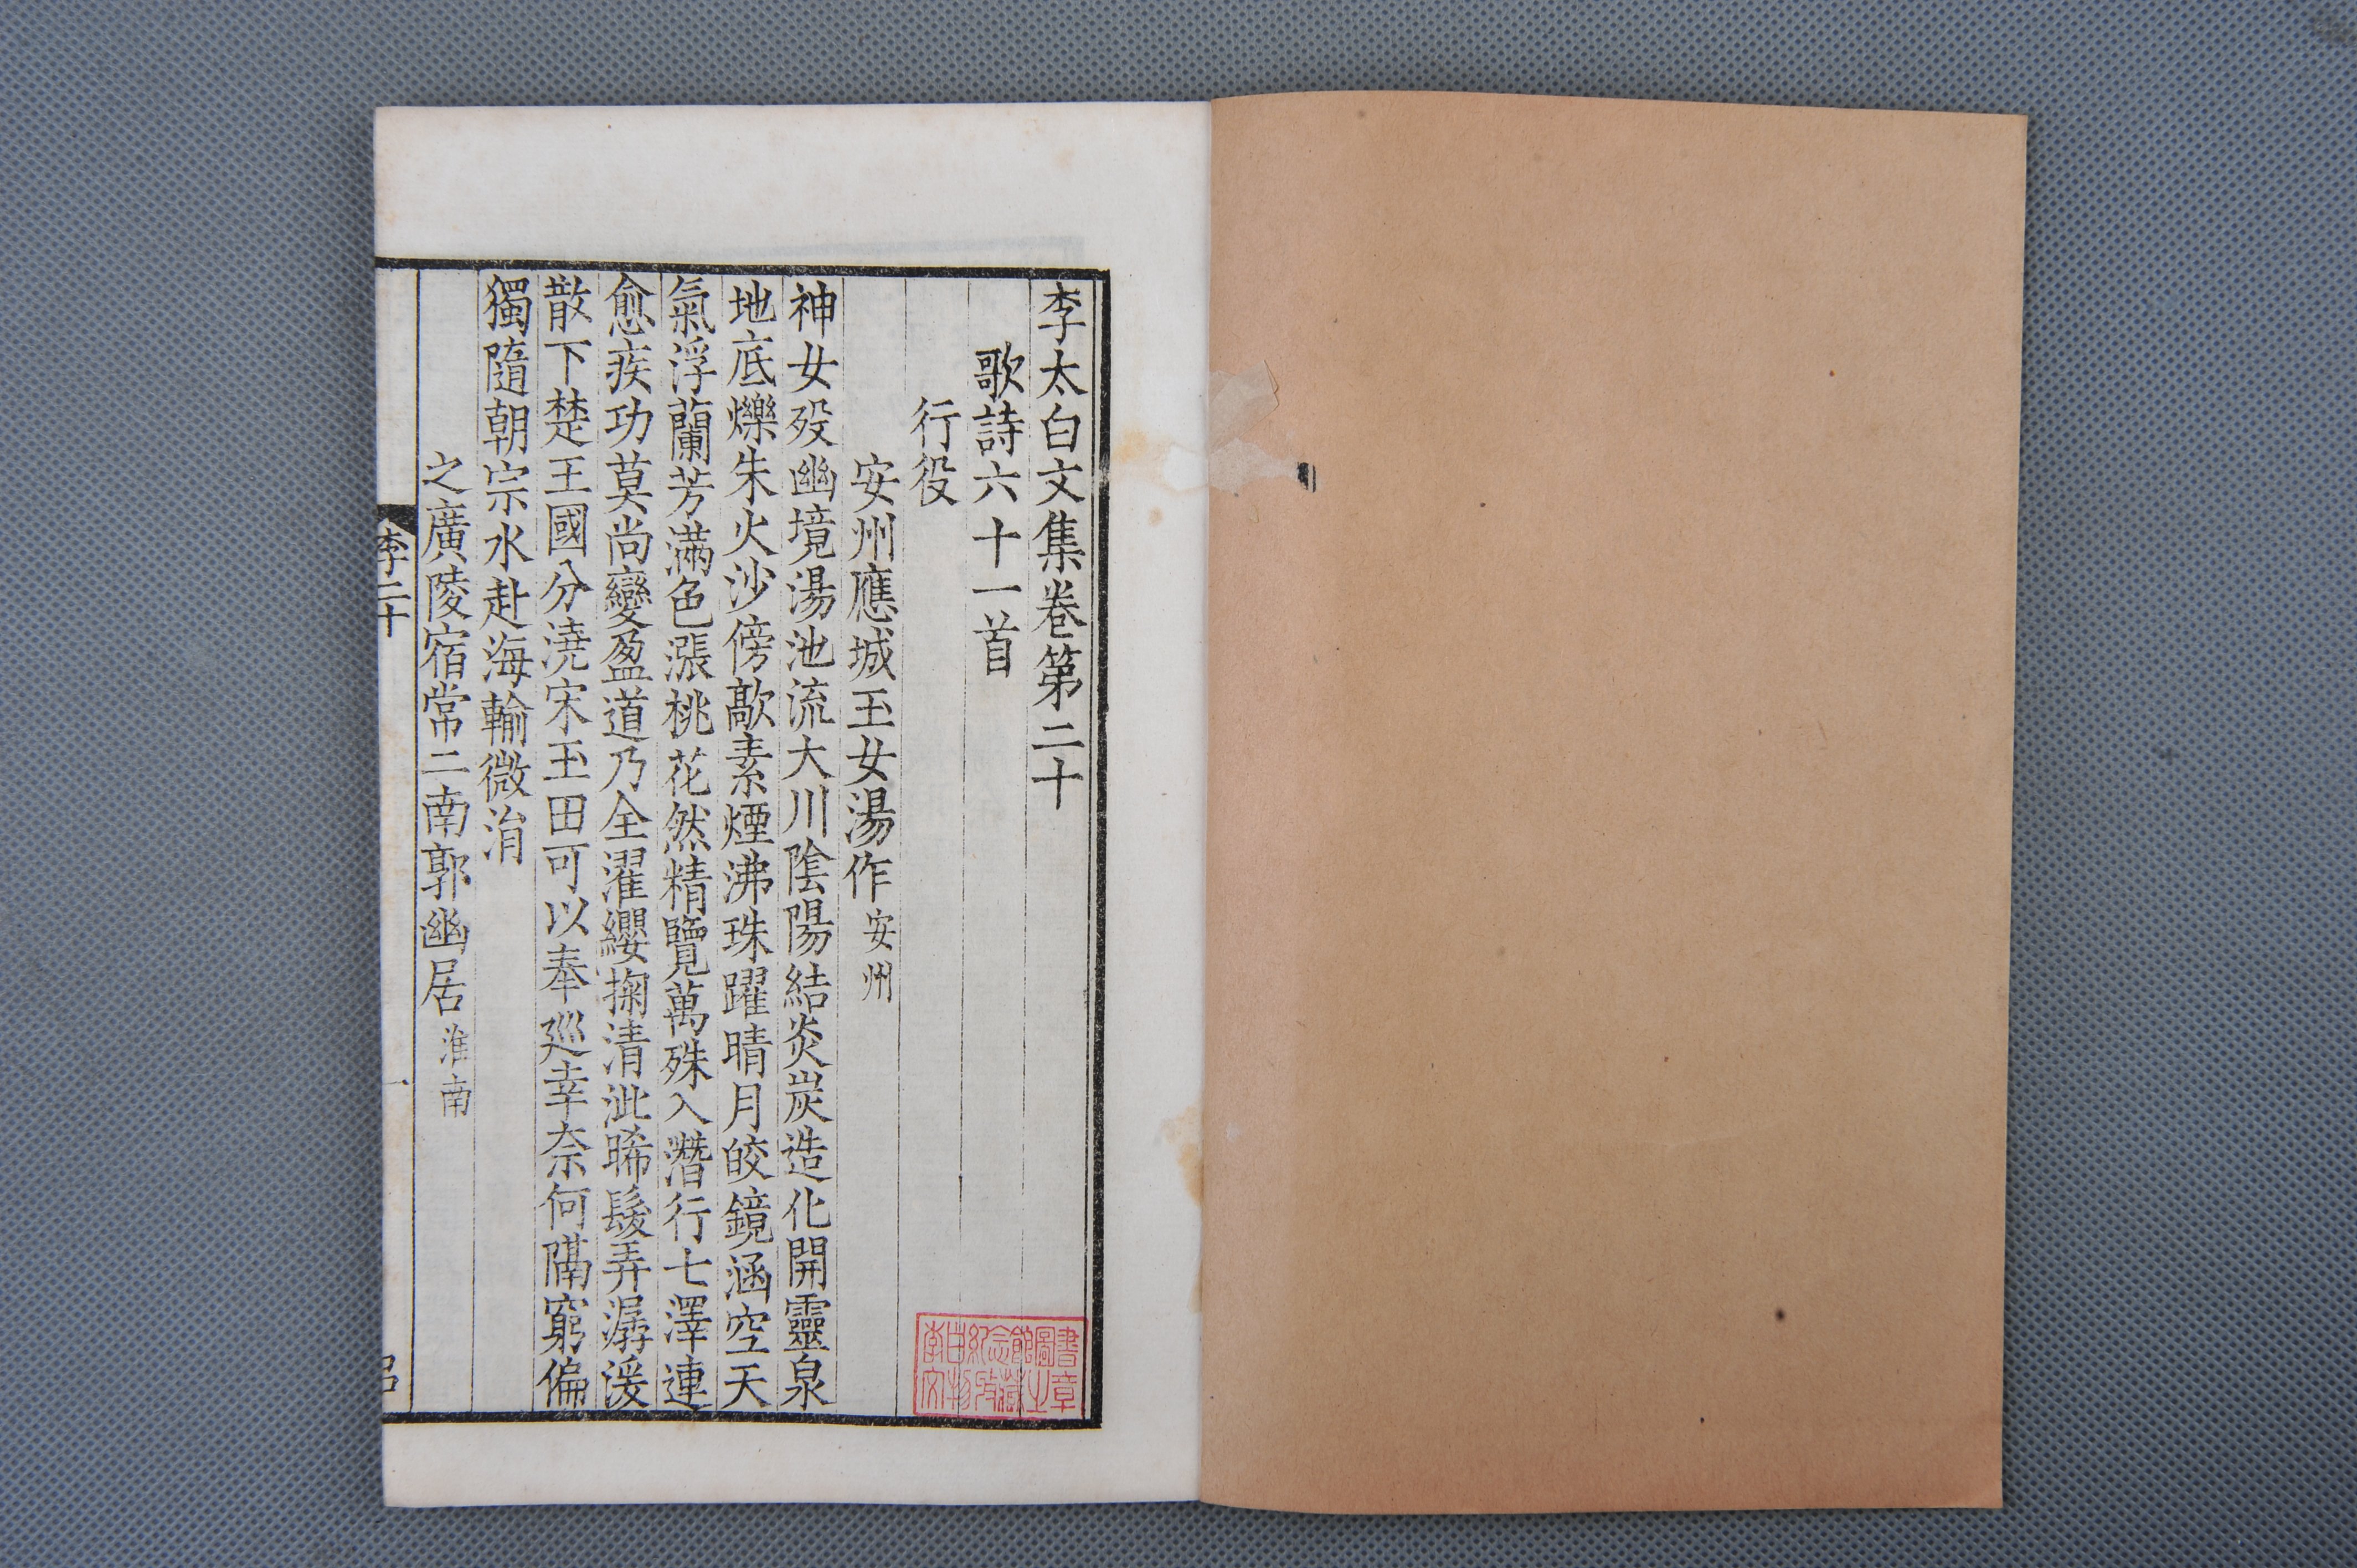 李太白文集卷第二十
歌詩六十一首
行役
安州應城玉女湯作安州
神女歿幽境湯池流大川陰陽結炎炭造化開靈泉
地底爍朱火沙傍歊素煙沸珠躍晴月皎鏡涵空天
氣浮蘭芳滿色漲桃花然精覽萬殊入潛行七澤連
愈疾功莫尚變盈道乃全濯纓掬清泚晞髮弄潺湲
散下楚王國分澆宋玉田可以奉巡幸奈何隔窮偏
獨隨朝宗水赴海輸微涓
之廣陵宿常二南郭幽居淮南
李二十
一